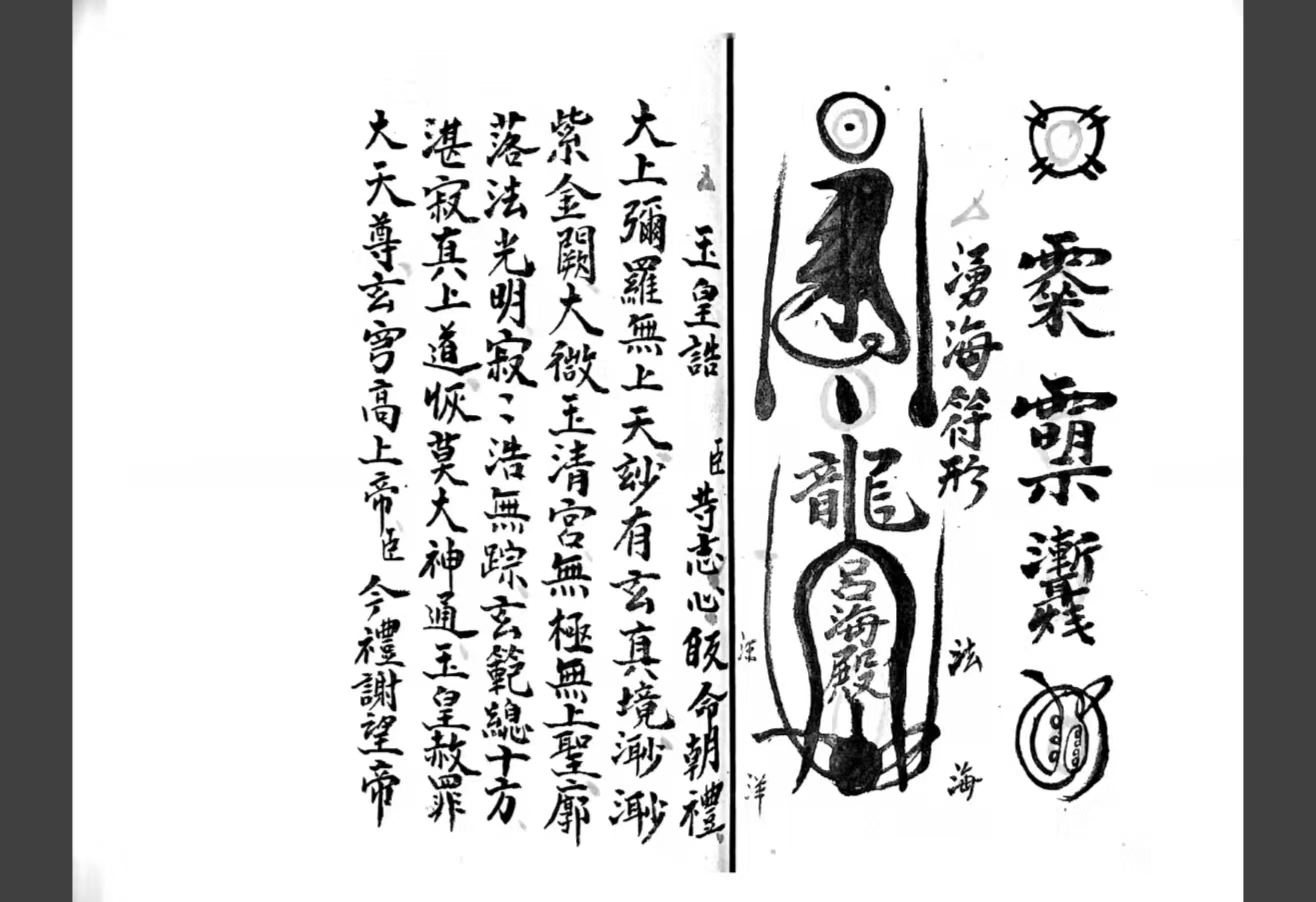 湧海符形
龍
呂海殿
法
海
汪
洋
玉皇誥 臣等志心皈命朝禮
大上彌羅無上天玅有玄真境渺渺
紫金闕大微玉清宮無極無上聖廓
落法光明寂〻浩無踪玄範總十方
湛寂真上道恢莫大神通玉皇赦罪
大天尊玄穹高上帝臣今禮謝望帝